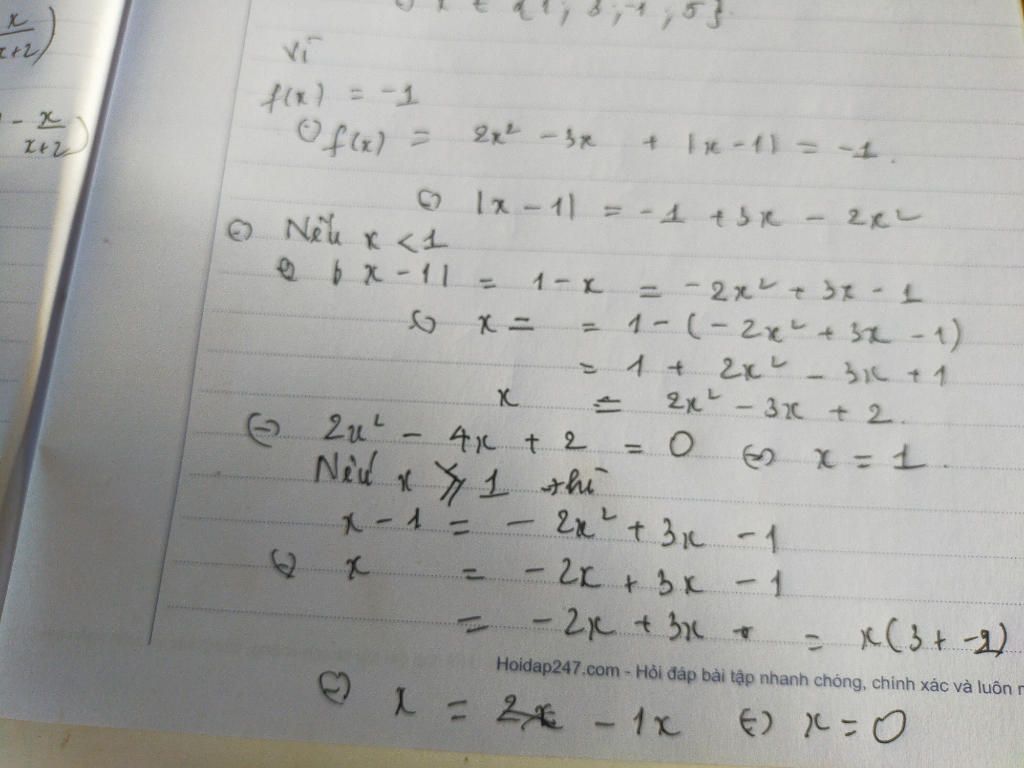 x ∈ {1; 3; -1; 5}.
x/(x+2))
- x/(x+2))
Vì
f(x) = -1
⇔ f(x) = 2x² - 3x + |x-1| = -1.
⇔ |x-1| = -1 + 3x - 2x²
⇔ Nếu x < 1
⇔ |x-1| = 1-x = -2x² + 3x - 1
⇔ x = = 1-(-2x² + 3x - 1)
= 1 + 2x² - 3x + 1
x = 2x² - 3x + 2.
⇔ 2x² - 4x + 2 = 0 ⇔ x = 1.
Nếu x ≥ 1 thì
x - 1 = - 2x² + 3x - 1
⇔ x = - 2x + 3x - 1
= - 2x + 3x = x(3 + -2)
Hoidap247.com - Hỏi đáp bài tập nhanh chóng, chính xác và luôn
⇔ x = 2x - 1x ⇔ x = 0